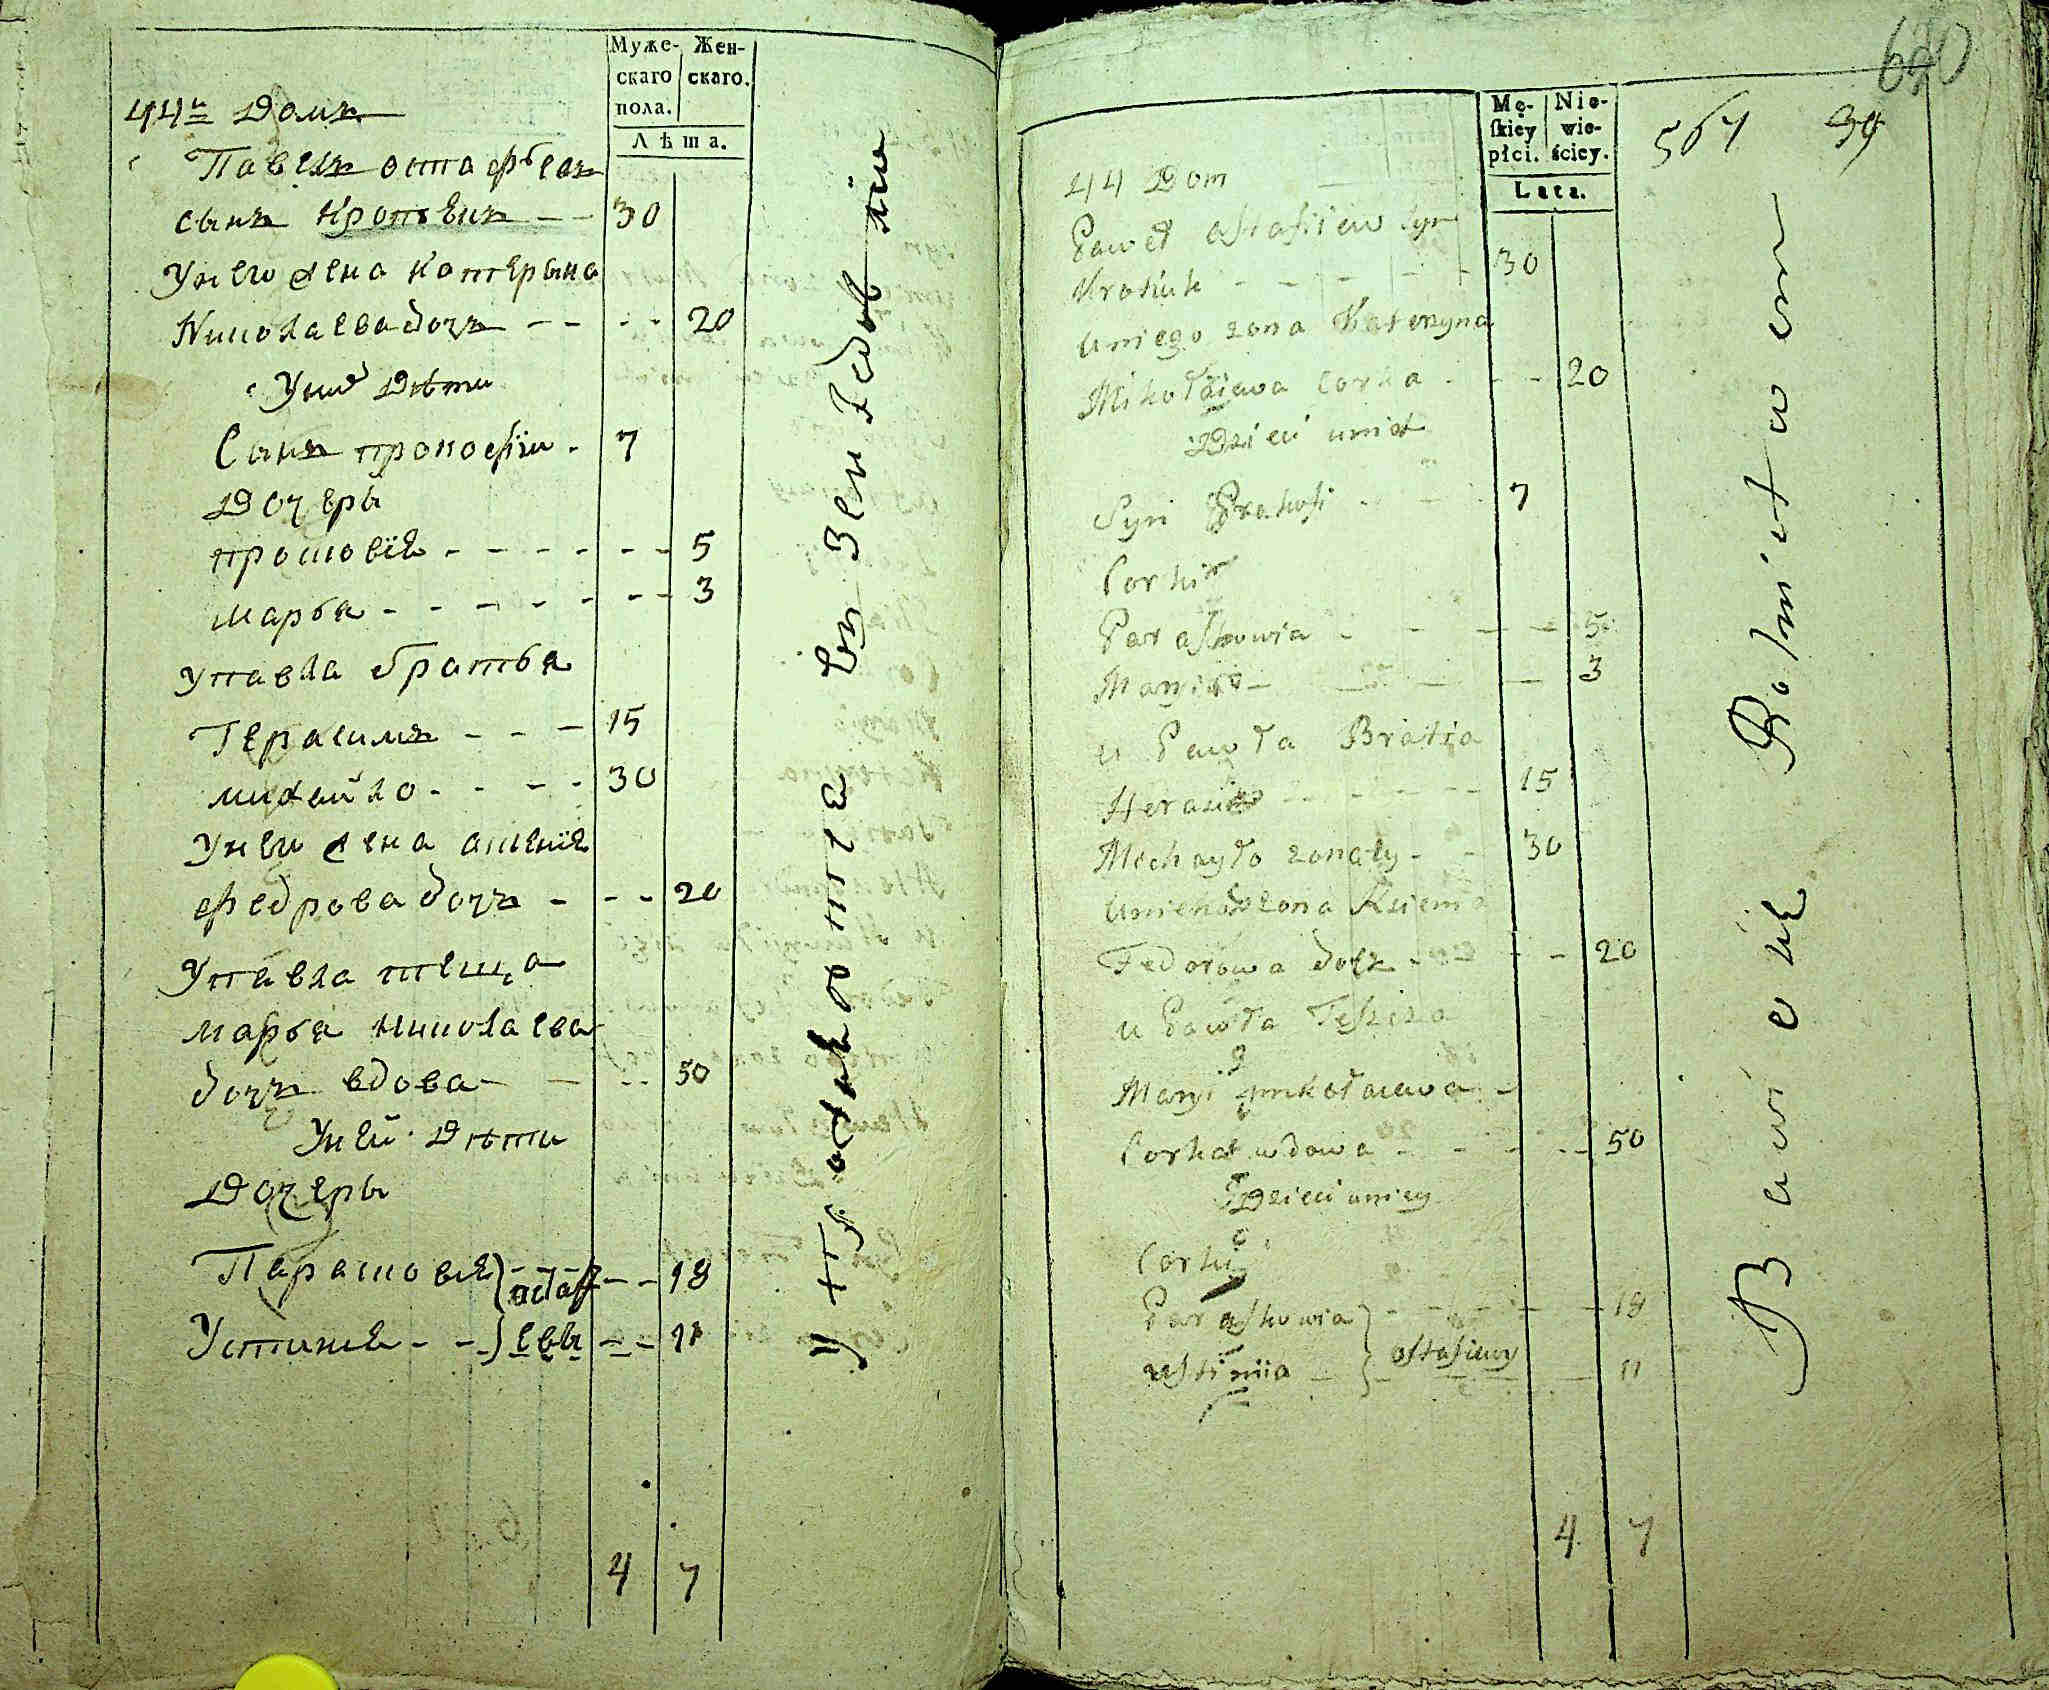 Муже-
скаго
пола.
Жен-
скаго.
Лѣта.
44й Домъ
Павелъ остафьевъ
сынъ Кропивъ 30
Унего жена катерына
Николаева дочь 20
Уних Дѣти
Сынъ прокофiи 7
Дочеры
прошовiя 5
марья 3
Упавла братья
Герасимъ 15
михайло 30
Унего жена аксенiя
Федрова дочъ 20
Упавла теща
марья николаева
дочъ вдова 50
Уней Дѣти
Дочеры
Парашовiя 18
остафь
Устинiя евы 11
4 7
620
564 39
Mę-
skiey
płci.
Nie-
wie-
ściey.
Lata.
44 Dom
Paweł astafiew Syn
Krasiuk 30
Uniego zona Kateryna
Mikołaiewa Corka 20
Dzieci unich
Syn Prakofi 7
Corki
Paraskowia 5
Maryia 3
u Pawła Bratia
Herasim 15
Mechayło zonaty 30
Unieho zona Ksienia
Fedorowa дочъ 20
u Pawła Teszcza
Maryi mikołaiewa
Corka wdowa 50
Dzieci uniey
Corki
Paraskowia 18
ostafiewy
ustiniia 11
4 7